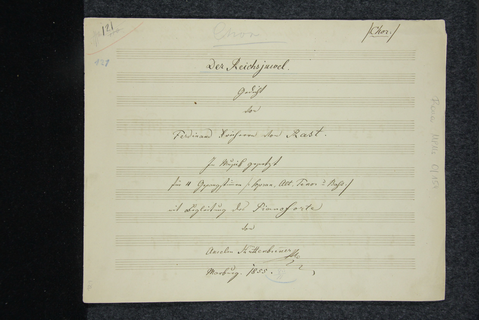 121
/Chor./
Chor
129
Der Reichsjuwel.
Gedicht
von
Ferdinand Freiherrn von Rast.
In Musik gesetzt
für 4 Singstimmen /: Sopran, Alt, Tenor & Baß /
mit Begleitung des Pianoforte
von
Anselm Hüttenbrenner
Marburg. 1855.